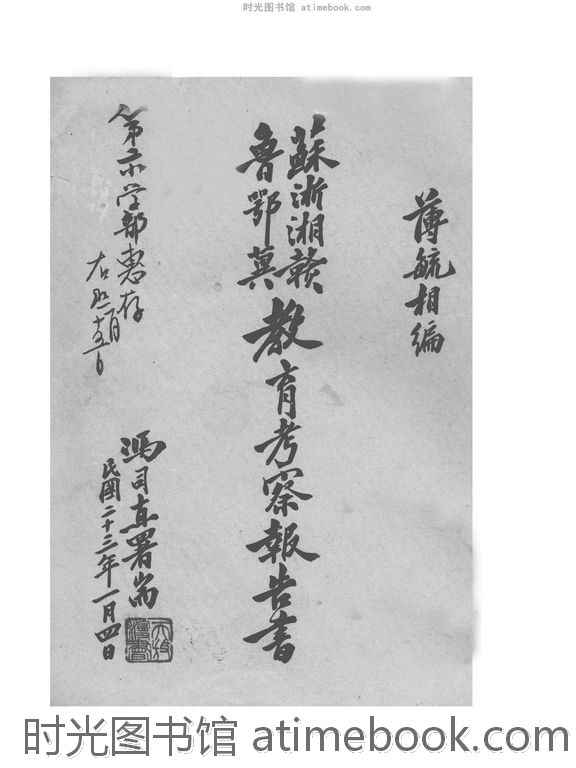 时光图书馆 atimebook.com
薄毓相编
蘇浙湘赣
魯鄂冀
教育考察報告書
馮司直署耑
民國二十三年一月四日
惠存
时光图书馆 atimebook.com